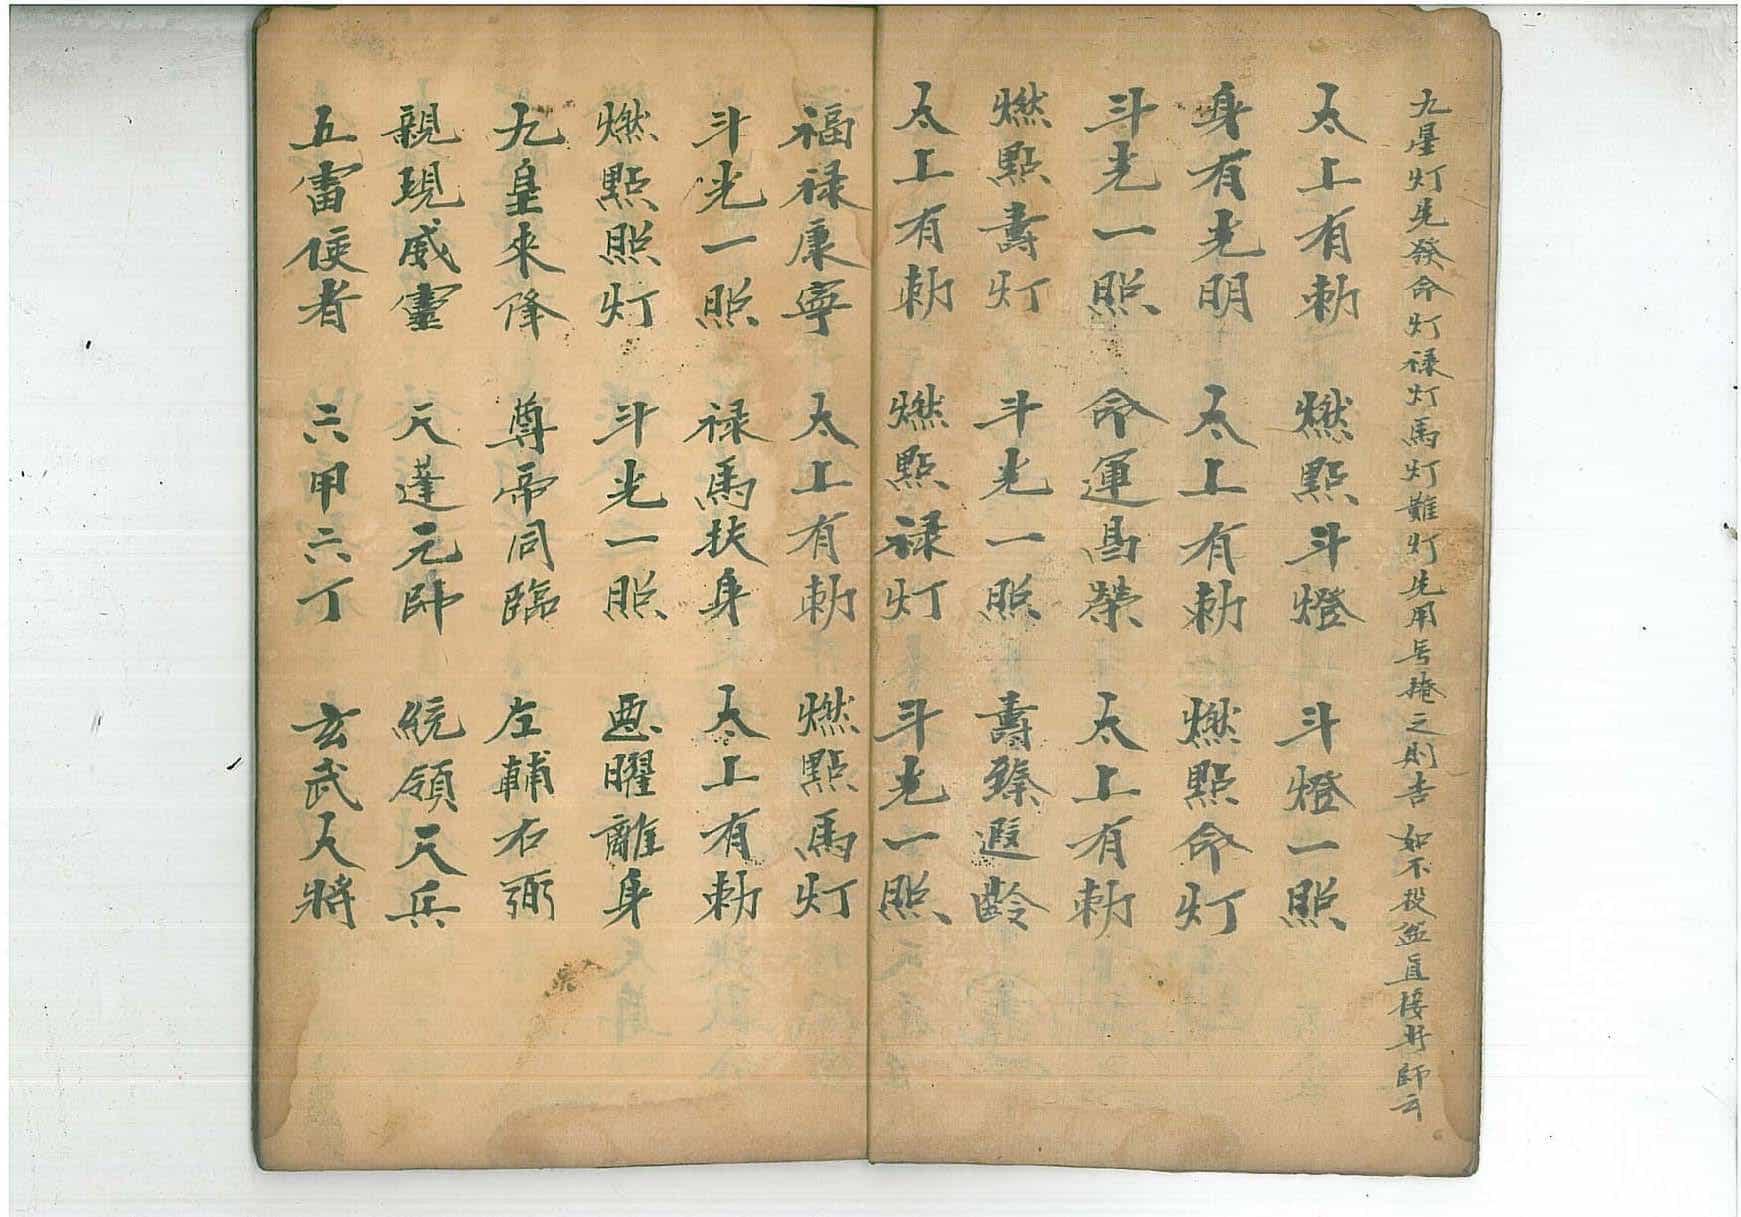 九星灯先發命灯禄灯馬灯難灯先用号掩之則吉 如不投盆直接好師云
太上有勅 燃點斗燈 斗燈一照
身有光明 太上有勅 燃點命灯
斗光一照 命運昌榮 太上有勅
燃點壽灯 斗光一照 壽臻遐齡
太上有勅 燃點禄灯 斗光一照
福禄康寧 太上有勅 燃點馬灯
斗光一照 禄馬扶身 太上有勅
燃點照灯 斗光一照 曜離身
九皇來降 尊帝同臨 左輔右弼
親現威靈 天蓬元帥 統領天兵
五雷使者 六甲六丁 玄武大將